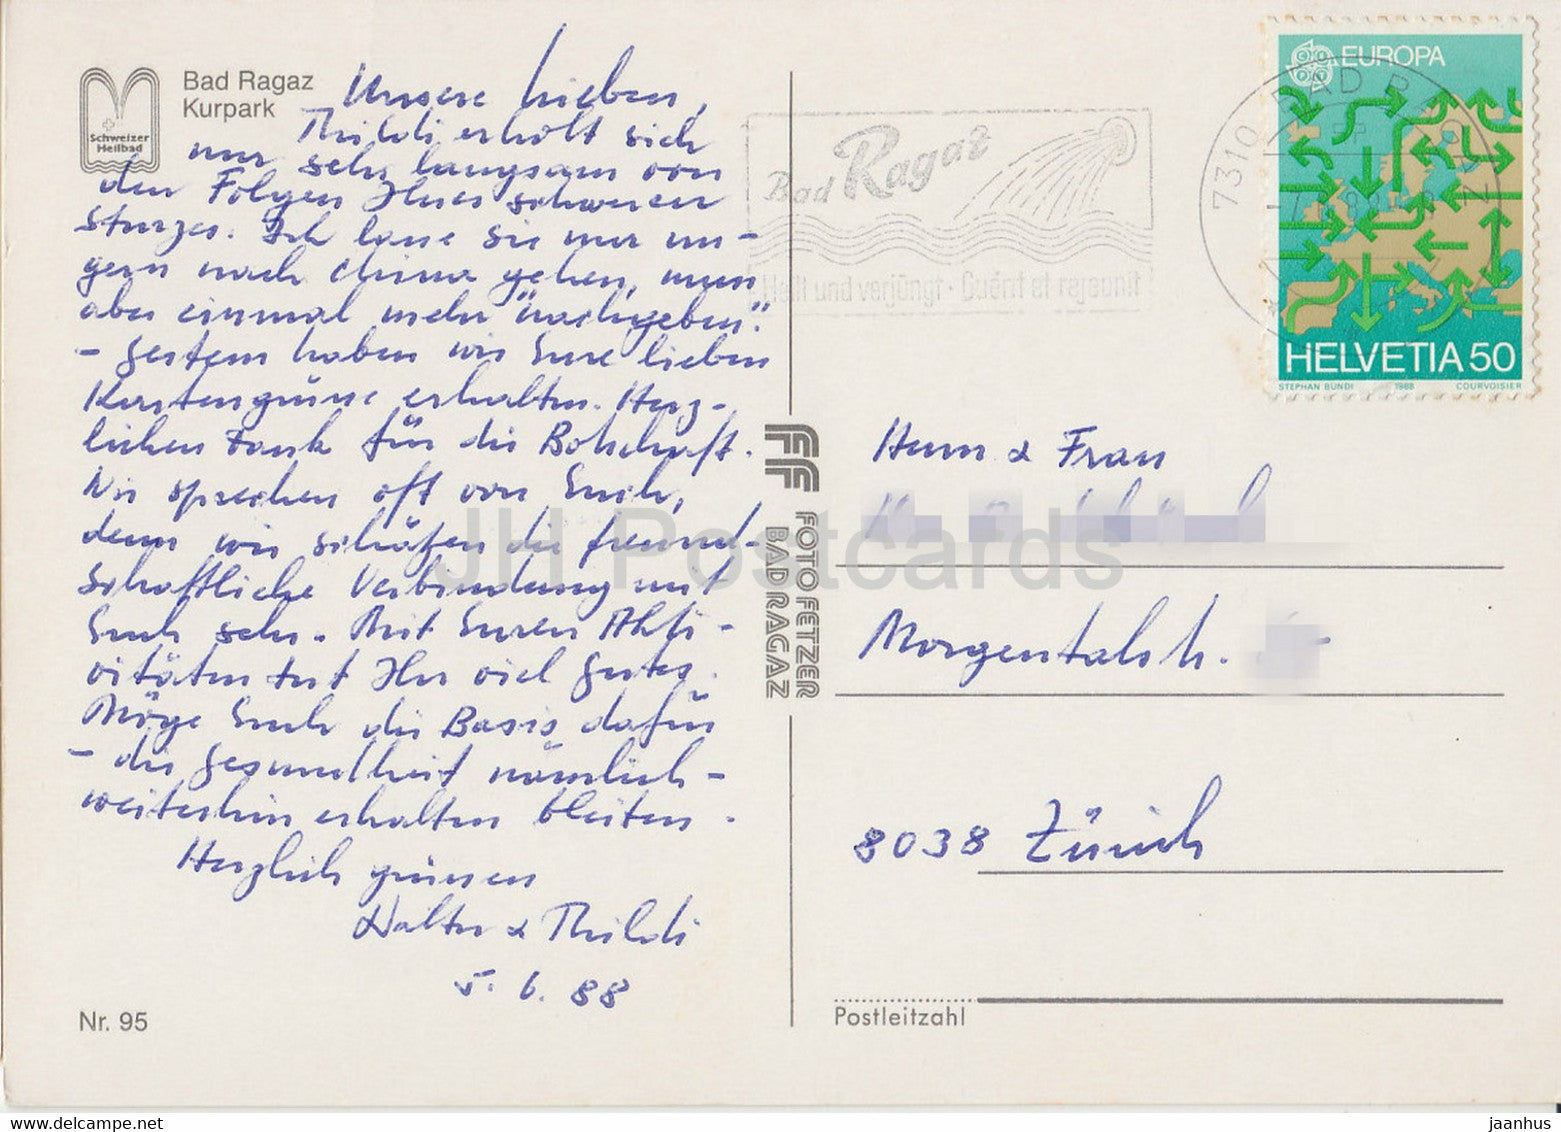 Bad Ragaz
Kurpark
Schweizer
Heilbad
Unsere Lieben,
Thildi erholt sich
nur sehr langsam von
den Folgen Ihres schweren
Sturzes. Ich lasse sie nur un-
gern nach China gehen, muss
aber einmal mehr "nachgeben".
- Gestern haben wir Eure lieben
Kartengrüsse erhalten. Herz-
lichen Dank für die Botschaft.
Wir sprechen oft von Euch,
denn wir schätzen die freund-
schaftliche Verbindung mit
Euch sehr. Mit Euren Akti-
vitäten tut Ihr viel Gutes.
Möge Euch die Basis dafür
- die Gesundheit nämlich -
weiterhin erhalten bleiben.
Herzlich grüssen
Walter & Thildi
5. 6. 88
Nr. 95
FOTO FETZER
BAD RAGAZ
Bad Ragaz
Heilt und verjüngt · Guérit et rajeunit
7310 BAD RAGAZ
EUROPA
HELVETIA 50
STEPHAN BUNDI 1988 COURVOISIER
Herrn & Frau
Morgentalstr.
8038 Zürich
Postleitzahl
JH Postcards
www.delcampe.net
jaanhus